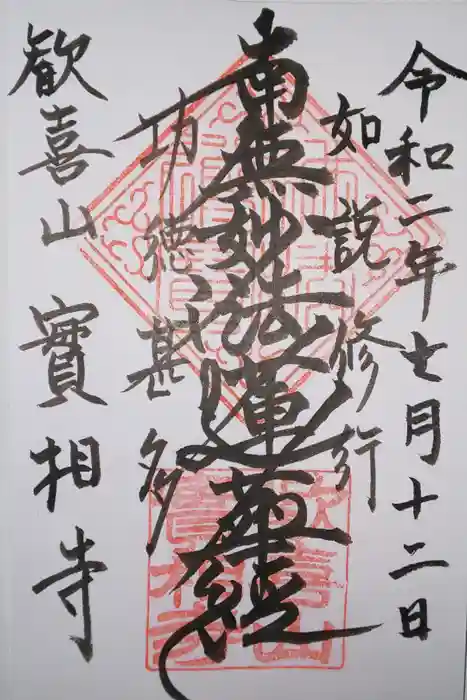 令和二年七月十二日
如説修行
南無妙法蓮華経
功徳甚多
歓喜山 實相寺